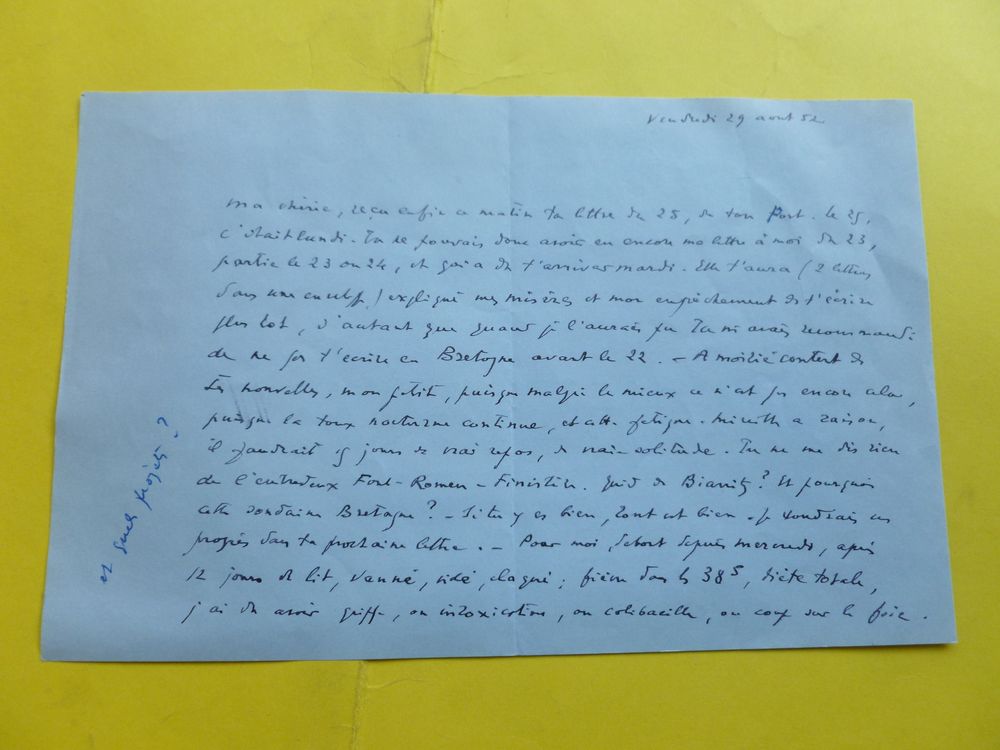 Vendredi 29 aout 52
ma chérie, reçu enfin ce matin ta lettre du 25, de ton Port. le 25,
c'était lundi. Tu ne pouvais donc avoir eu encore ma lettre à moi du 23,
partie le 23 ou 24, et qui a du t'arriver mardi. Elle t'aura (2 lettres
dans une envelop.) expliqué mes misères et mon empêchement de t'écrire
plus tot, d'autant que quand je l'aurais pu Tu m'avais recommandé
de ne pas t'écrire en Bretagne avant le 22. – A moitié content de
tes nouvelles, mon petit, puisque malgré le mieux ce n'est pas encore cela,
puisque la toux nocturne continue, et cette fatigue. a raison,
il faudrait 15 jours de vrai repos, de vraie solitude. Tu ne me dis rien
de l'entredeux Font-Romeu – Finistère. Quid de Biarritz? Et pourquoi
cette soudaine Bretagne? – Si tu y es bien, tout est bien. Je voudrais un
progrès dans ta prochaine lettre. – Pour moi, debout depuis mercredi, après
12 jours de lit, vanné, vidé, claqué; fièvre dans les 38⁵, diète totale,
j'ai du avoir grippe, ou intoxication, ou colibacille, ou coup sur le foie.
et quels projets?